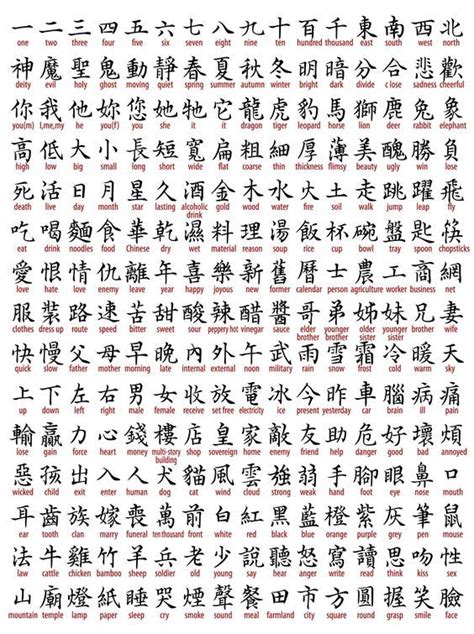 一二三四五六七八九十百千東南西北
one two three four five six seven eight nine ten hundred thousand east south west north
神魔聖鬼動靜春夏秋冬明暗分合悲歡
deity evil holy ghost moving quiet spring summer autumn winter bright dark divide close sadness cheerful
你我他妳您她牠它龍虎豹馬獅鹿兔象
you(m) I,me,my he you(f) you she it it dragon tiger leopard horse lion deer rabbit elephant
高低大小長短寬扁粗細厚薄美醜勝負
high low big small long short wide flat coarse thin thickness flimsy beauty ugly win lose
死活日月星久酒金木水火土走跳躍飛
death live day month star lasting alcoholic drink gold wood water fire soil walk jump leap fly
吃喝麵食華乾濕料理湯飯杯碗盤匙筷
eat drink noodles food Chinese dry wet material reason soup rice cup bowl tray spoon chopsticks
愛恨情仇離年喜樂新舊曆士農工商網
love hate love enemy leave year happy joyous new former calendar person agriculture worker business net
服裝路速苦甜酸辣醋醬哥弟姊妹兄妻
clothes dress up route speed bitter sweet sour peppery hot vinegar sauce elder brother younger brother older sister younger sister brother wife
快慢父母早晚內外午武雨雪霜冷暖天
quick slow father mother morning late internal external noon military rain snow frost cold warm sky
上下左右男女收放電冰今昨車腦病痛
up down left right male female receive set free electricity ice present yesterday car brain ill pain
輸贏力心錢樓店皇家敵友助危好壞煩
lose gain force heart money multi-story building shop sovereign home enemy friend help danger good bad annoyed
惡孩出入人犬貓風雲強弱手腳眼鼻口
wicked child exit enter human dog cat wind cloud strong weak hand foot eye nose mouth
耳齒族嫁喪萬前白紅黑藍橙紫灰筆鼠
ear tooth clan marry funeral ten thousand front white red black blue orange purple grey pen mouse
法牛雞竹羊兵老少說聽怒寫讀思吻性
law cattle chicken bamboo sheep soldier old young say hear anger write read think kiss sex
山廟燈紙睡哭煙聲餐田市方圓握笑感
mountain temple lamp paper sleep cry smoke sound meal farmland city square round grasp smile sense